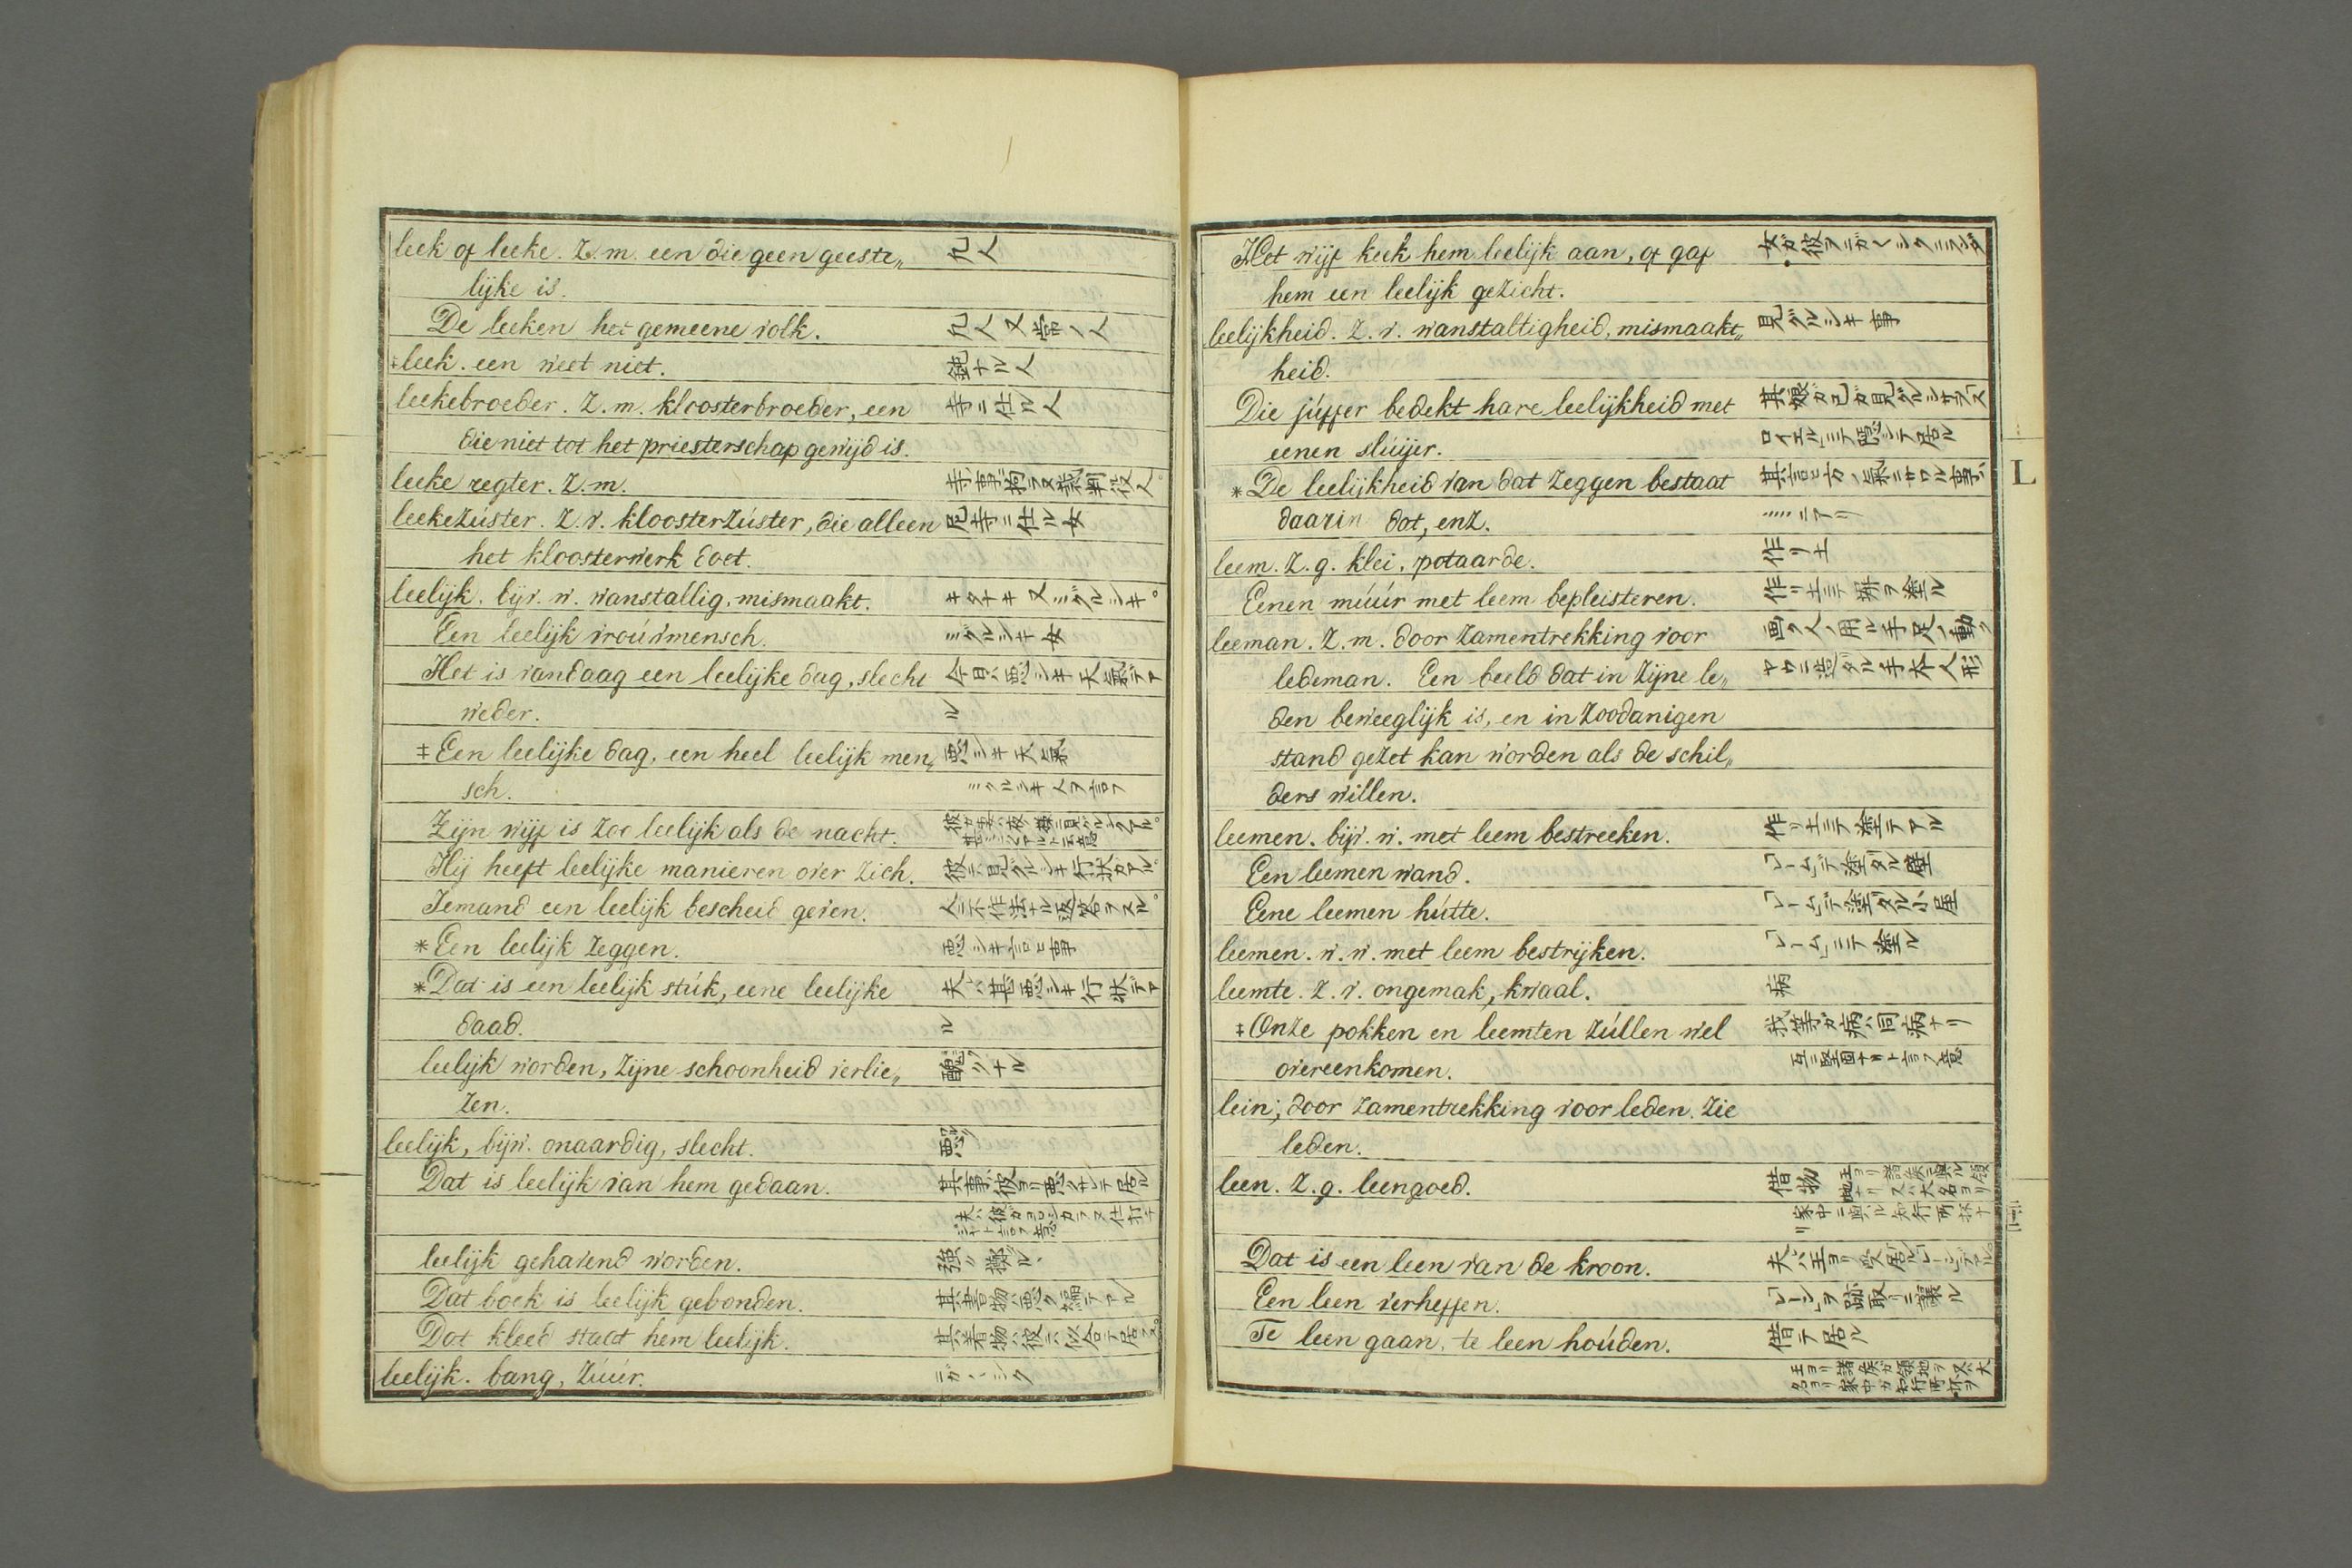 leek of leeke. Z. m. een die geen geeste„ 凡人
lijke is.
De leeken het gemeene volk. 凡人又常ノ人
‡leek. een weet niet. 鈍ナル人
leekebroeder. Z. m. kloosterbroeder, een 寺ニ仕ル人
die niet tot het priesterschap gewijd is.
leeke regter. Z. m.
leekezúster. Z. v. kloosterzúster, die alleen 尼寺ニ仕ル女
het kloosterwerk doet.
leelijk. bijv. w. wanstallig, mismaakt. キタナキ又ミグルシキ。
Een leelijk vroúwmensch. ミグルシキ女
Het is vandaag een leelijke dag, slecht 今日ハ悪シキ天氣デア
weder. ル
‡ Een leelijke dag, een heel leelijk men„ 悪シキ天氣
sch. ミグルシキ人ヲ言フ
Zijn wijf is zoo leelijk als de nacht.
Hij heeft leelijke manieren over zich. 彼ハ見グルシキ行状ガアル。
Iemand een leelijk bescheid geven. 人ニ不作法ナル返答ヲスル。
* Een leelijk zeggen. 悪シキ言ヒ事
* Dat is een leelijk stúk, eene leelijke 夫ハ甚悪シキ行状デア
daad. ル
leelijk worden, zijne schoonheid verlie„ 醜クナル
zen.
leelijk, bijw. onaardig, slecht. 悪ク
Dat is leelijk van hem gedaan.
leelijk gehavend worden.
Dat boek is leelijk gebonden. 其書物ハ悪ク編テアル
Dat kleed staat hem leelijk. 其着物ハ彼ニ似合テ居ヌ。
leelijk. bang, zúúr. ニガ〱シク
Het wijf keek hem leelijk aan, of gaf
hem een leelijk gezicht.
leelijkheid. Z. v. wanstaltigheid, mismaakt„ 見グルシキ事
heid.
Die júffer bedekt hare leelijkheid met
eenen slúijer.
* De leelijkheid van dat zeggen bestaat
daarin dat, enz.
L
leem. Z. g. klei, potaarde. 作リ土
Eenen múúr met leem bepleisteren. 作リ土ニテ塀ヲ塗ル
leeman. Z. m. door zamentrekking voor 画ク人ノ用ル手足ノ動ク
ledeman. Een beeld dat in zijne le„ ヤウニ造タル手本人形
den beweeglijk is, en in zoodanigen
stand gezet kan worden als de schil„
ders willen.
leemen. bijv. w. met leem bestreeken. 作リ土ニテ塗テアル
Een leemen wand. 「レーム」デ塗タル壁
Eene leemen hútte. 「レーム」デ塗タル小屋
leemen. w. w. met leem bestrijken. 「レーム」ニテ塗ル
leemte. Z. v. ongemak, kwaal. 病
‡ Onze pokken en leemten zúllen wel 我等ガ病ハ同病ナリ
overeenkomen.
lein; door zamentrekking voor leden. Zie
leden.
leen. Z. g. leengoed. 借物 王ヨリ諸侯ニ與ル領
地ナリ又ハ大名ヨリ
家中ニ與ル知行所抔ナ
リ
Dat is een leen van de kroon.
Een leen verheffen. 「レーン」ヲ跡取リニ譲ル
Te leen gaan, te leen hoúden. 借テ居ル
王ヨリ諸侯ガ領地ヲ又ハ大
名ヨリ家中ガ知行所抔ヲ